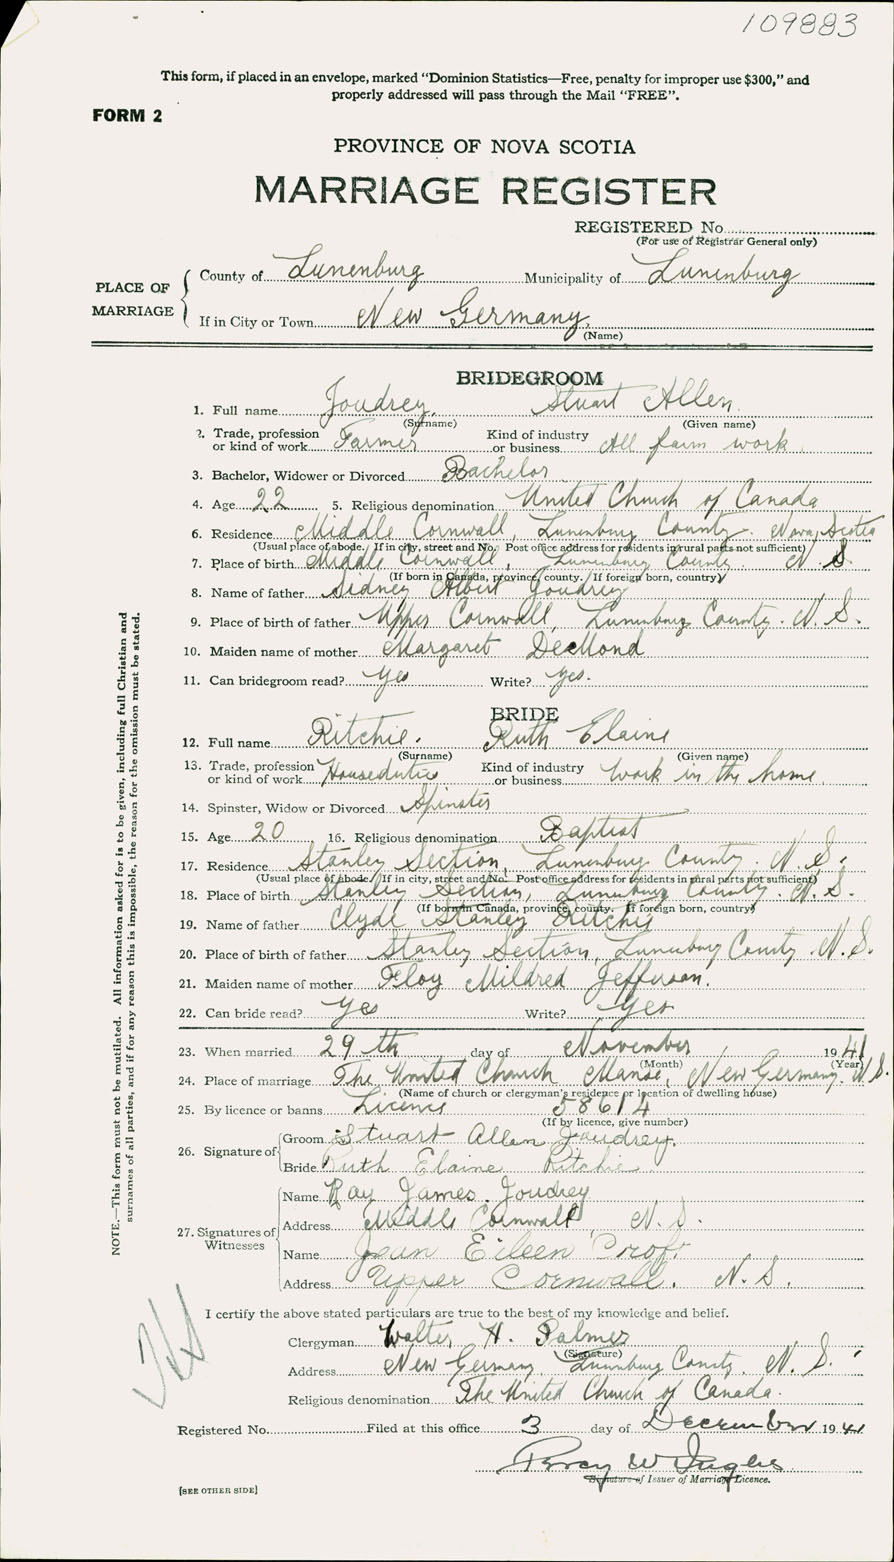 109883
This form, if placed in an envelope, marked “Dominion Statistics—Free, penalty for improper use $300,” and
properly addressed will pass through the Mail “FREE”.
FORM 2
PROVINCE OF NOVA SCOTIA
MARRIAGE REGISTER
REGISTERED No.
(For use of Registrar General only)
PLACE OF MARRIAGE
County of Lunenburg Municipality of Lunenburg
If in City or Town New Germany
(Name)
BRIDEGROOM
1. Full name Joudrey, Stuart Allen
(Surname) (Given name)
2. Trade, profession or kind of work Farmer Kind of industry or business All farm work
3. Bachelor, Widower or Divorced Bachelor
4. Age 22 5. Religious denomination United Church of Canada
6. Residence Middle Cornwall, Lunenburg County. Nova Scotia
(Usual place of abode. If in city, street and No. Post office address for residents in rural parts not sufficient)
7. Place of birth Middle Cornwall, Lunenburg County. N. S.
(If born in Canada, province, county. If foreign born, country)
8. Name of father Sidney Albert Joudrey
9. Place of birth of father Upper Cornwall, Lunenburg County. N. S.
10. Maiden name of mother Margaret DeMond
11. Can bridegroom read? Yes Write? Yes.
BRIDE
12. Full name Ritchie. Ruth Elaine
(Surname) (Given name)
13. Trade, profession or kind of work Houseduties Kind of industry or business Work in the home
14. Spinster, Widow or Divorced Spinster
15. Age 20 16. Religious denomination Baptist
17. Residence Stanley Section, Lunenburg County. N. S.
(Usual place of abode. If in city, street and No. Post office address for residents in rural parts not sufficient)
18. Place of birth Stanley Section, Lunenburg County. N. S.
(If born in Canada, province, county. If foreign born, country)
19. Name of father Clyde Stanley Ritchie
20. Place of birth of father Stanley Section, Lunenburg County. N. S.
21. Maiden name of mother Floy Mildred Jefferson.
22. Can bride read? Yes Write? Yes
23. When married 29th day of November 1941
(Month) (Year)
24. Place of marriage The United Church Manse, New Germany. N. S.
(Name of church or clergyman's residence or location of dwelling house)
25. By licence or banns Licence 58614
(If by licence, give number)
26. Signature of Groom Stuart Allen Joudrey.
Bride Ruth Elaine Ritchie
27. Signatures of Witnesses
Name Ray James Joudrey
Address Middle Cornwall, N. S.
Name Jean Eileen Croft
Address Upper Cornwall. N. S.
I certify the above stated particulars are true to the best of my knowledge and belief.
Clergyman Walter H. Palmer
(Signature)
Address New Germany, Lunenburg County. N. S.
Religious denomination The United Church of Canada.
Registered No. Filed at this office 3 day of December 1941
Percy W
Signature of Issuer of Marriage Licence.
[SEE OTHER SIDE]
NOTE.—This form must not be mutilated. All information asked for is to be given, including full Christian and
surnames of all parties, and if for any reason this is impossible, the reason for the omission must be stated.